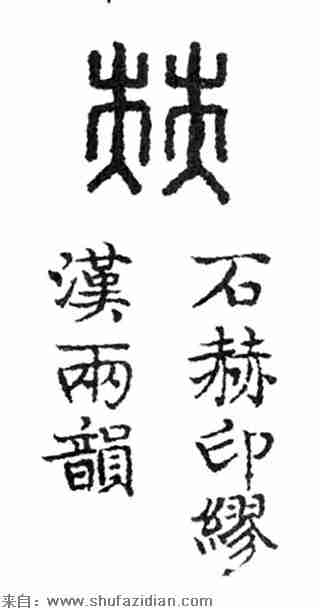 赫
石赫印繆
漢兩韻
来自：www.shufazidian.com